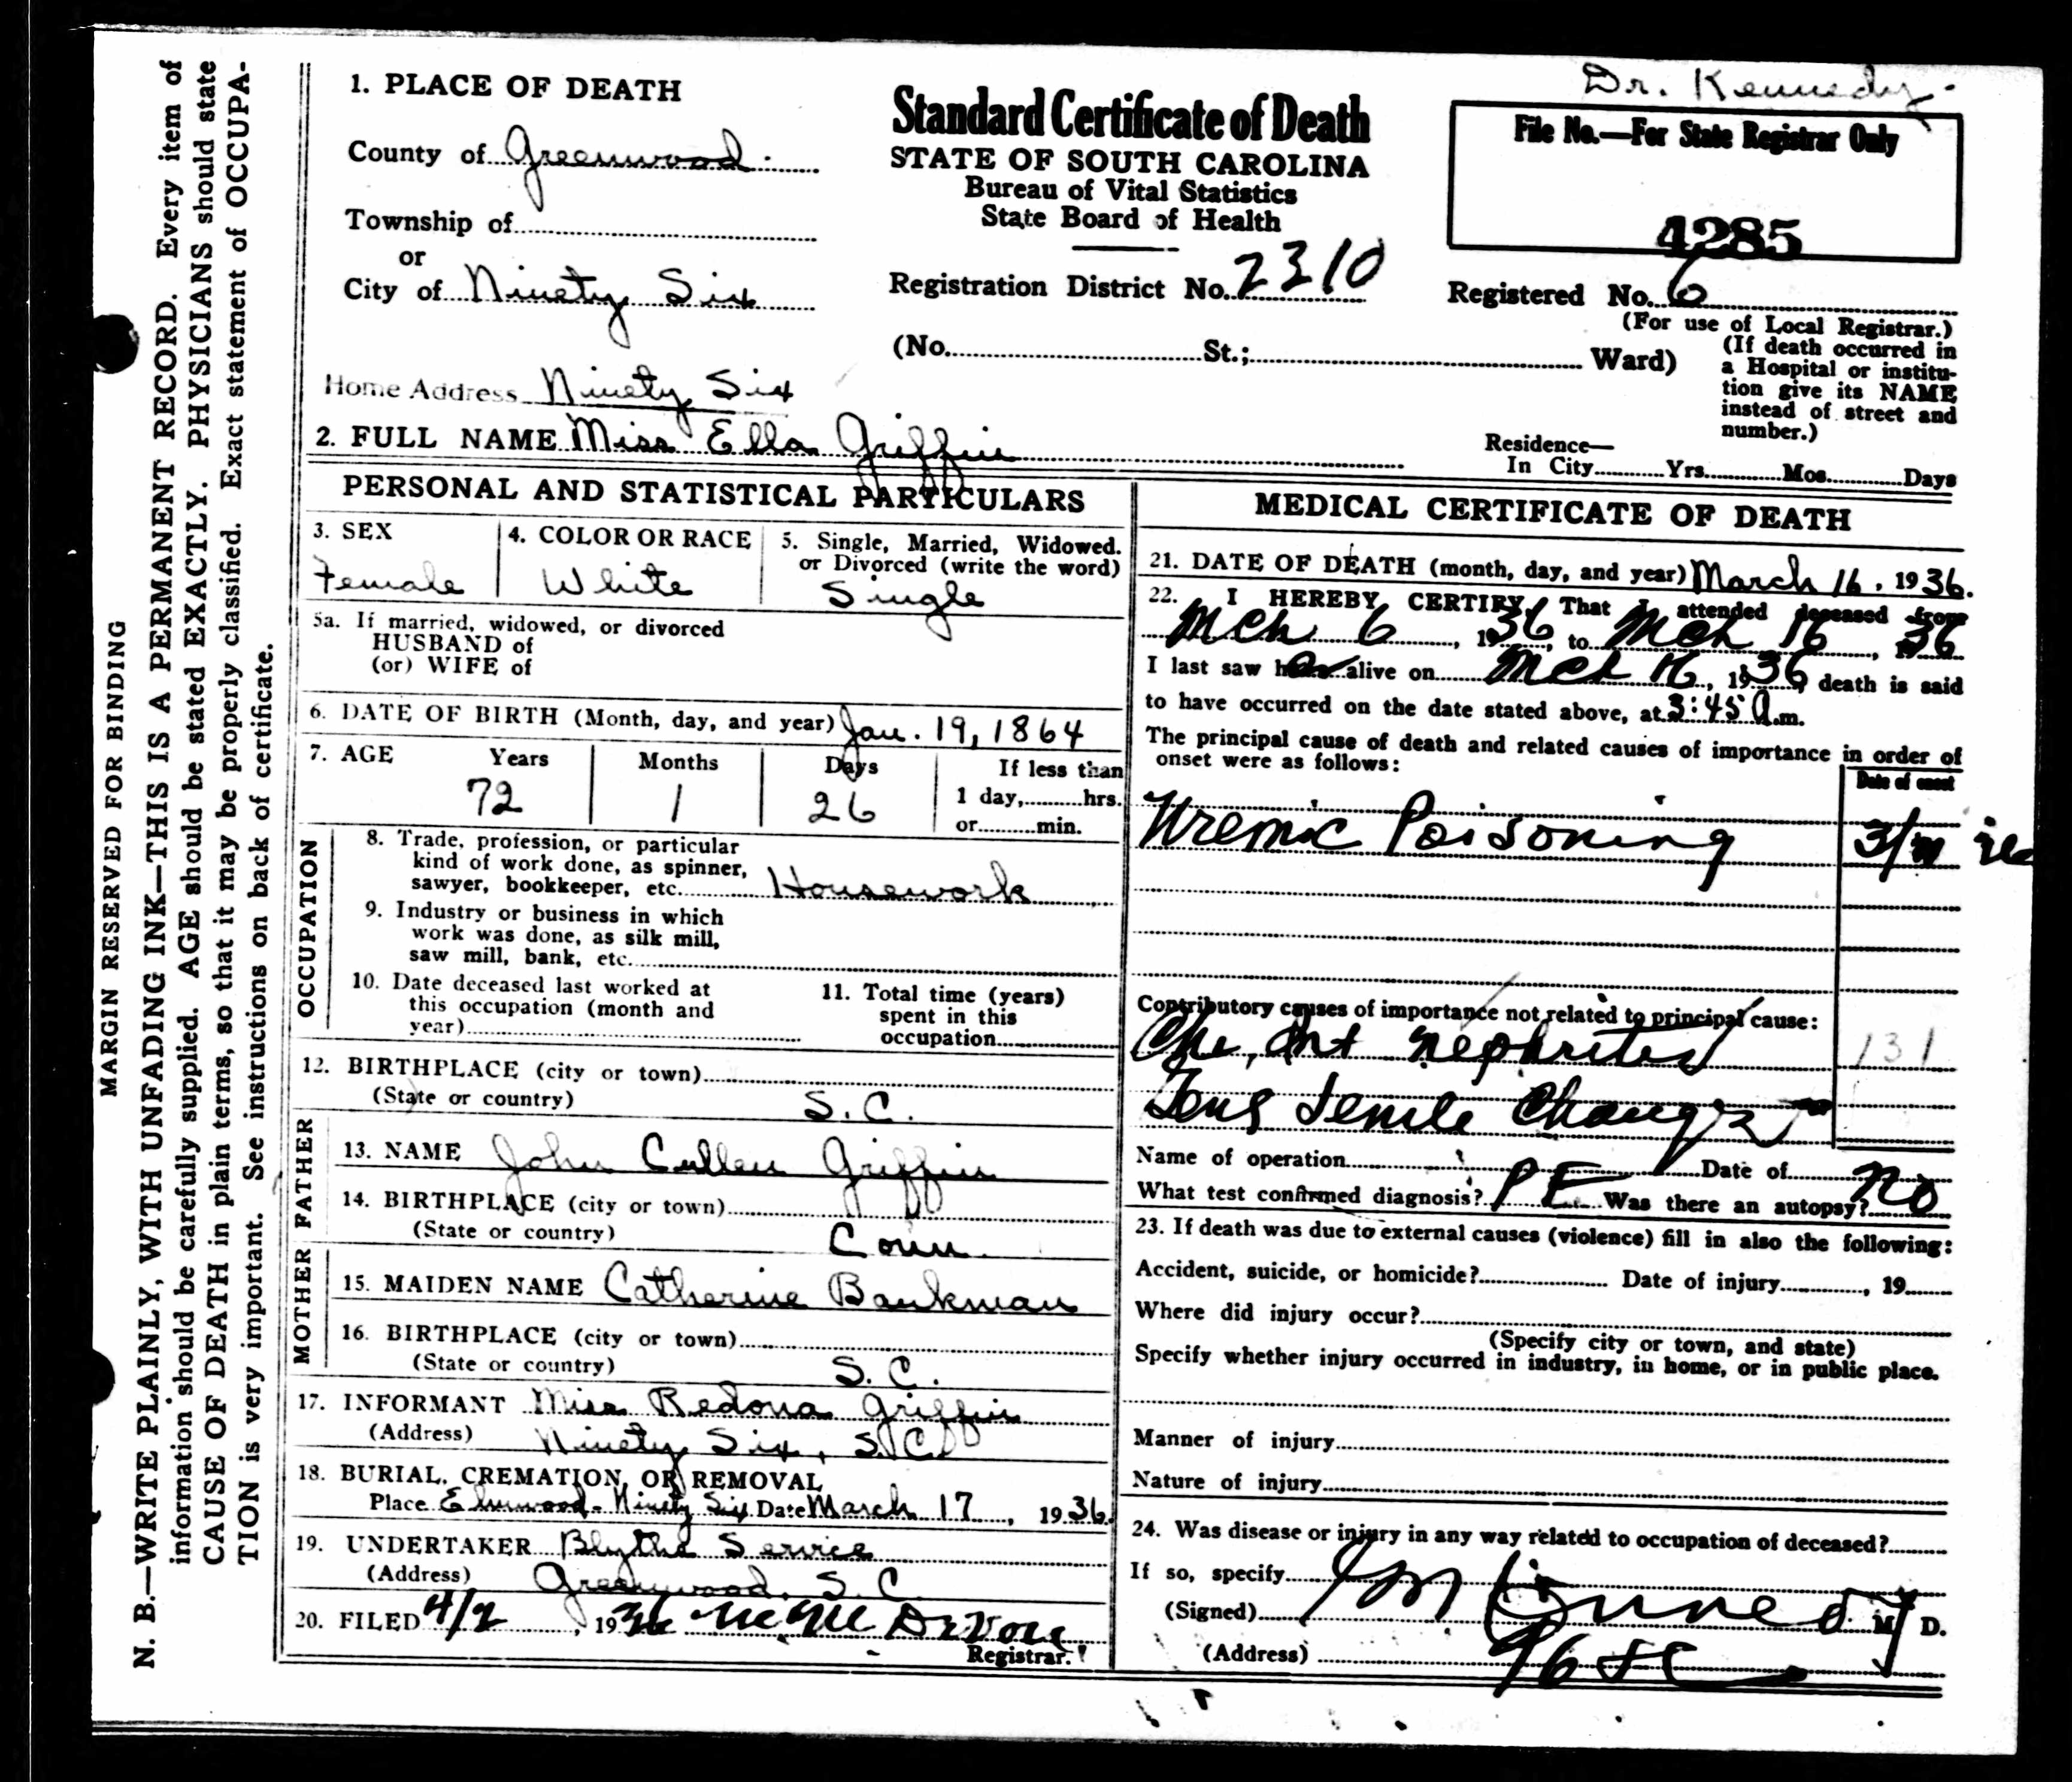 Dr. Kennedy.
1. PLACE OF DEATH
County of Greenwood.
Township of
or
City of Ninety Six
Home Address Ninety Six
2. FULL NAME Miss Ella Griffin
Standard Certificate of Death
STATE OF SOUTH CAROLINA
Bureau of Vital Statistics
State Board of Health
Registration District No. 2310
(No. St.; Ward)
File No.—For State Registrar Only
4285
Registered No. 6
(For use of Local Registrar.)
(If death occurred in
a Hospital or institu-
tion give its NAME
instead of street and
number.)
Residence—
In City Yrs. Mos. Days
PERSONAL AND STATISTICAL PARTICULARS
3. SEX
Female
4. COLOR OR RACE
White
5. Single, Married, Widowed.
or Divorced (write the word)
Single
5a. If married, widowed, or divorced
HUSBAND of
(or) WIFE of
6. DATE OF BIRTH (Month, day, and year) Jan. 19, 1864
7. AGE Years Months Days If less than
72 1 26 1 day, hrs.
or min.
OCCUPATION
8. Trade, profession, or particular
kind of work done, as spinner,
sawyer, bookkeeper, etc. Housework
9. Industry or business in which
work was done, as silk mill,
saw mill, bank, etc.
10. Date deceased last worked at
this occupation (month and
year)
11. Total time (years)
spent in this
occupation
12. BIRTHPLACE (city or town)
(State or country) S. C.
FATHER
13. NAME John Cullen Griffin
14. BIRTHPLACE (city or town)
(State or country) Conn.
MOTHER
15. MAIDEN NAME Catherine Baukman
16. BIRTHPLACE (city or town)
(State or country) S. C.
17. INFORMANT Miss Redona Griffin
(Address) Ninety Six, S. C.
18. BURIAL, CREMATION, OR REMOVAL
Place Elmwood - Ninety Six Date March 17, 1936.
19. UNDERTAKER Blyths Service
(Address) Greenwood, S. C.
20. FILED 4/2, 1936
Registrar.
MEDICAL CERTIFICATE OF DEATH
21. DATE OF DEATH (month, day, and year) March 16, 1936.
22. I HEREBY CERTIFY, That I attended deceased from
Mch 6, 1936, to Mch 16, 1936
I last saw her alive on Mch 16, 1936, death is said
to have occurred on the date stated above, at 3:45 a.m.
The principal cause of death and related causes of importance in order of
onset were as follows:
Date of onset
Uremic Poisoning
Contributory causes of importance not related to principal cause:
Chr, Int Nephrites 131
Senile Changes
Name of operation Date of
What test confirmed diagnosis? PE Was there an autopsy? No
23. If death was due to external causes (violence) fill in also the following:
Accident, suicide, or homicide? Date of injury, 19
Where did injury occur?
(Specify city or town, and state)
Specify whether injury occurred in industry, in home, or in public place.
Manner of injury
Nature of injury
24. Was disease or injury in any way related to occupation of deceased?
If so, specify
(Signed) Kennedy M. D.
(Address) 96 SC
MARGIN RESERVED FOR BINDING
N. B.—WRITE PLAINLY, WITH UNFADING INK—THIS IS A PERMANENT RECORD. Every item of
information should be carefully supplied. AGE should be stated EXACTLY. PHYSICIANS should state
CAUSE OF DEATH in plain terms, so that it may be properly classified. Exact statement of OCCUPA-
TION is very important. See instructions on back of certificate.